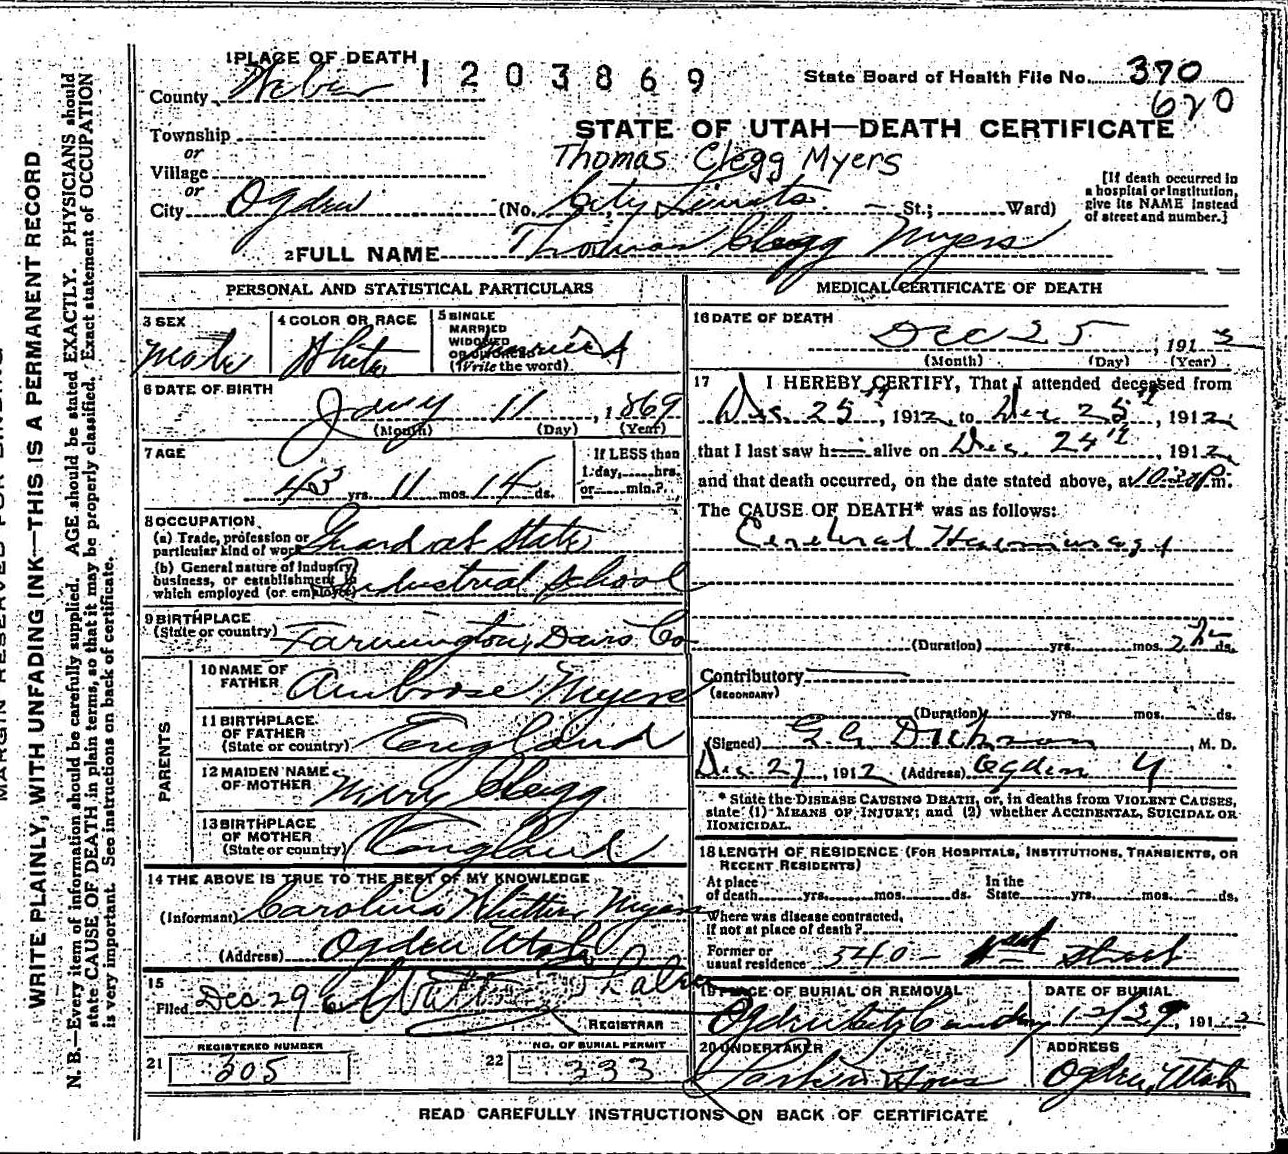 1 PLACE OF DEATH 1203869 State Board of Health File No. 370
620
County Weber
STATE OF UTAH—DEATH CERTIFICATE
Township
or
Thomas Clegg Myers
Village
or
City Ogden (No. City Limits — St.; Ward)
[If death occurred in
a hospital or institution,
give its NAME instead
of street and number.]
2 FULL NAME Thomas Clegg Myers
PERSONAL AND STATISTICAL PARTICULARS
3 SEX
Male
4 COLOR OR RACE
White
5 SINGLE
MARRIED
WIDOWED
OR DIVORCED
(Write the word)
Married
6 DATE OF BIRTH
Jany 11, 1869
(Month) (Day) (Year)
7 AGE
43 yrs. 11 mos. 14 ds.
If LESS than
1 day, hrs.
or min.?
8 OCCUPATION
(a) Trade, profession or
particular kind of work Guard at State
(b) General nature of Industry
business, or establishment in
which employed (or employer) Industrial School
9 BIRTHPLACE
(State or country) Farmington, Davis Co
PARENTS
10 NAME OF
FATHER Ambrose Myers
11 BIRTHPLACE
OF FATHER
(State or country) England
12 MAIDEN NAME
OF MOTHER Mary Clegg
13 BIRTHPLACE
OF MOTHER
(State or country) England
14 THE ABOVE IS TRUE TO THE BEST OF MY KNOWLEDGE
(Informant) Carolina Myers
(Address) Ogden Utah
15
Filed Dec 29
REGISTRAR
REGISTERED NUMBER
21 305
NO. OF BURIAL PERMIT
22 333
MEDICAL CERTIFICATE OF DEATH
16 DATE OF DEATH
Dec 25, 1912
(Month) (Day) (Year)
17 I HEREBY CERTIFY, That I attended deceased from
Dec. 25th, 1912, to Dec 25th, 1912,
that I last saw h alive on Dec. 24th, 1912,
and that death occurred, on the date stated above, at m.
The CAUSE OF DEATH* was as follows:
Cerebral Haemorrage
(Duration) yrs. mos. ds.
Contributory
(SECONDARY)
(Duration) yrs. mos. ds.
(Signed) G.G. Dickson, M. D.
Dec 27, 1912 (Address) Ogden U
* State the DISEASE CAUSING DEATH, or, in deaths from VIOLENT CAUSES,
state (1) MEANS OF INJURY; and (2) whether ACCIDENTAL, SUICIDAL OR
HOMICIDAL.
18 LENGTH OF RESIDENCE (FOR HOSPITALS, INSTITUTIONS, TRANSIENTS, OR
RECENT RESIDENTS)
At place
of death yrs. mos. ds.
In the
State yrs. mos. ds.
Where was disease contracted,
if not at place of death?
Former or
usual residence 340 — Street
19 PLACE OF BURIAL OR REMOVAL
Ogden City
DATE OF BURIAL
12/29, 1912
20 UNDERTAKER
Larkin & Sons
ADDRESS
Ogden, Utah
READ CAREFULLY INSTRUCTIONS ON BACK OF CERTIFICATE
MARGIN RESERVED FOR BINDING
WRITE PLAINLY, WITH UNFADING INK—THIS IS A PERMANENT RECORD
N. B.—Every item of information should be carefully supplied. AGE should be stated EXACTLY. PHYSICIANS should
state CAUSE OF DEATH in plain terms, so that it may be properly classified. Exact statement of OCCUPATION
is very important. See instructions on back of certificate.